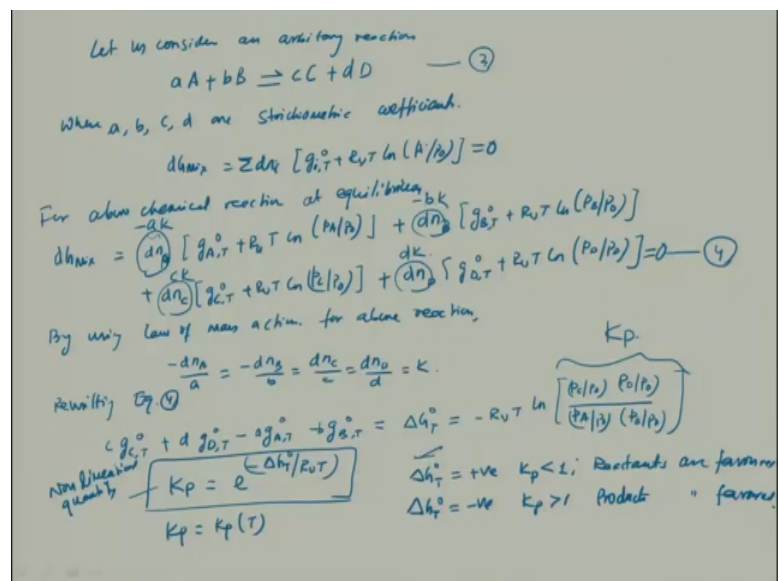 Let us consider an arbitrary reaction
aA + bB ⇌ cC + dD —— (3)
Where a, b, c, d are Stoichiometric coefficients.
dGmix = Σdni [g°i,T + RuT ln (Pi/P0)] = 0
For above chemical reaction at equilibrium
-ak -bk
dGmix = (dnA) [g°A,T + RuT ln (PA/P0)] + (dnB) [g°B,T + RuT ln (PB/P0)]
ck dk
+ (dnC) [g°C,T + RuT ln (PC/P0)] + (dnD) [g°D,T + RuT ln (PD/P0)] = 0 —— (4)
By using Law of mass action. for above reaction,
-dnA/a = -dnB/b = dnC/c = dnD/d = K.
Kp.
Rewritting Eq. (4)
c g°C,T + d g°D,T - a g°A,T - b g°B,T = ΔG°T = -RuT ln [(PC/P0) (PD/P0) / (PA/P0) (PB/P0)]
Non dimensional quantity
Kp = e^(-ΔG°T/RuT)
ΔG°T = +ve Kp<1; Reactants are favoured
ΔG°T = -ve Kp>1 Products " favoured
Kp = Kp(T)